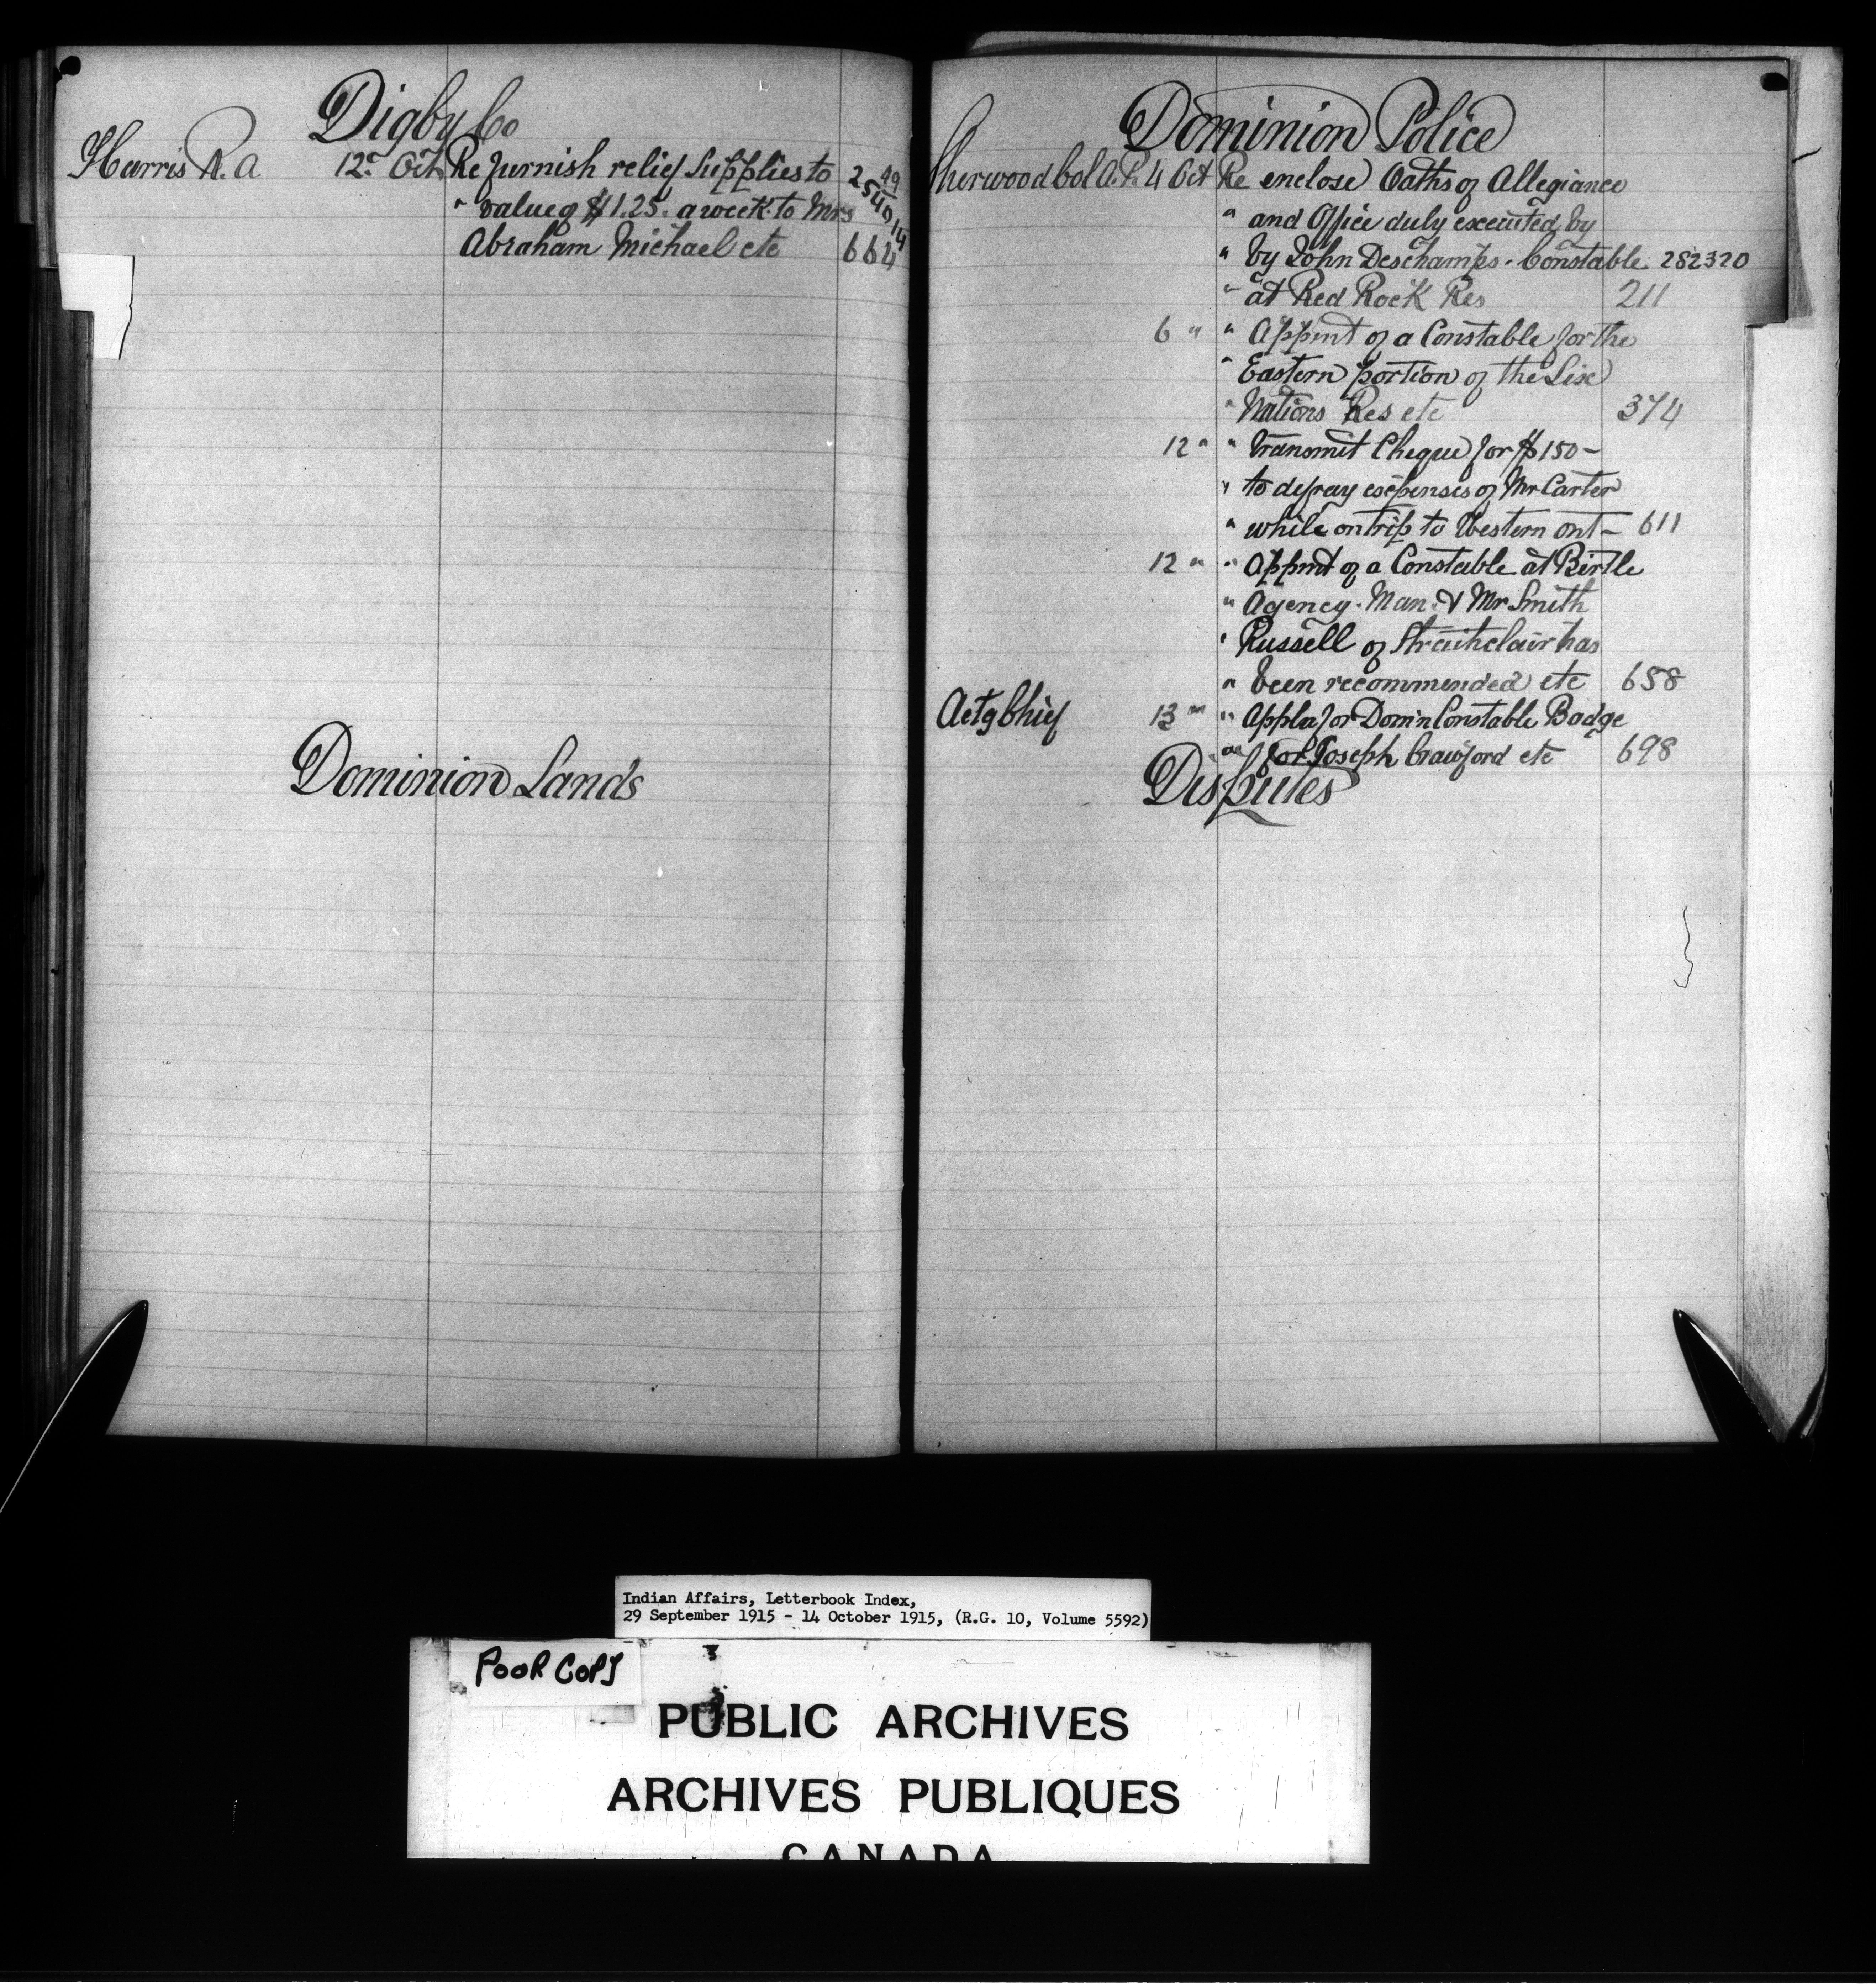 Digby Co
Harris R. A 12" Oct Re furnish relief supplies to
" value of $1.25. a week to Mrs
Abraham Michael etc 664
Dominion Lands
Dominion Police
Sherwood Col A. P. 4 Oct Re enclose Oaths of Allegiance
" and Office duly executed by
" by John Deschamps - Constable 282320
" at Red Rock Res 211
6 " " Appmt of a Constable for the
" Eastern portion of the Six
" Nations Res etc 374
12 " " Transmit Cheque for $150 -
" to defray expenses of Mr Carter
" while on trip to Western Ont - 611
12 " " Appmt of a Constable at Birtle
" Agency. Man. & Mr Smith
" Russell of Strathclair has
" been recommended etc 658
Actg Chief 13 " " Appln for Dom'n Constable Badge
" for Joseph Crawford etc 698
Disputes
Indian Affairs, Letterbook Index,
29 September 1915 - 14 October 1915, (R.G. 10, Volume 5592)
POOR COPY
PUBLIC ARCHIVES
ARCHIVES PUBLIQUES
CANADA